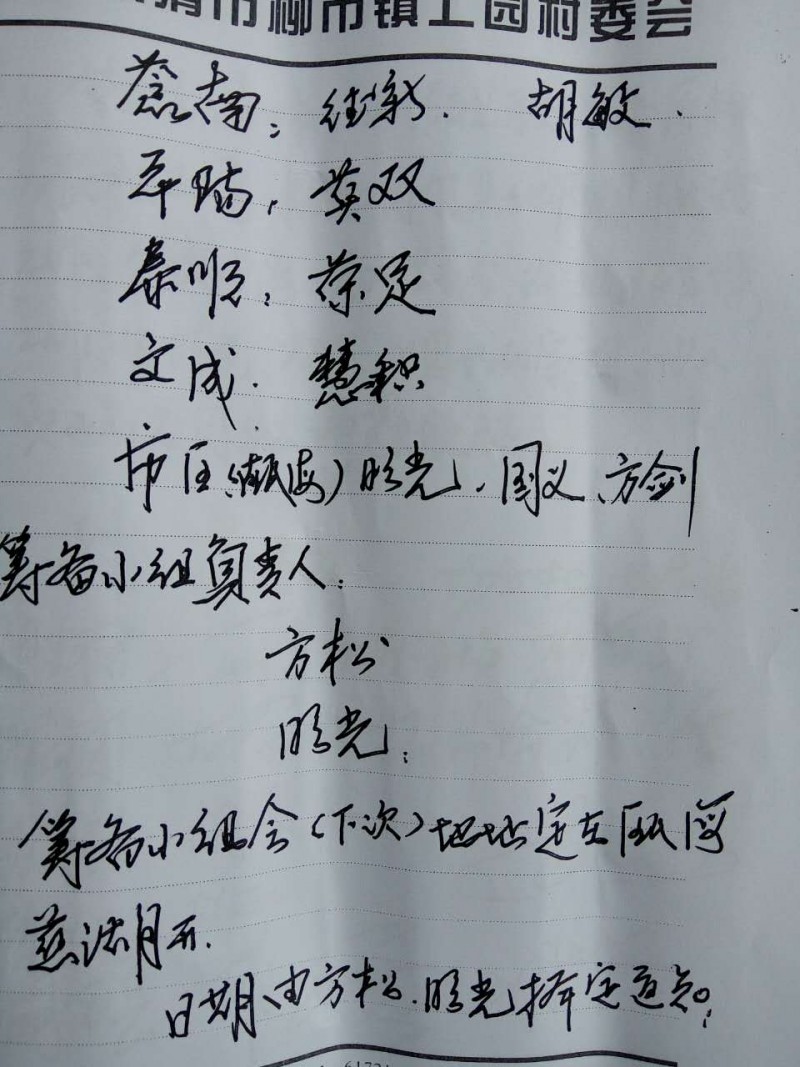 清市柳市镇上园村委会
苍南：继新．胡敏．
平阳：黄双
泰顺：蔡足
文成．慧积
市区（瓯海）晓光．国义、方剑
筹备小组负责人：
方松
晓光；
筹备小组会（下次）地址定在瓯海
月开．
日期由方松．晓光择定通知；